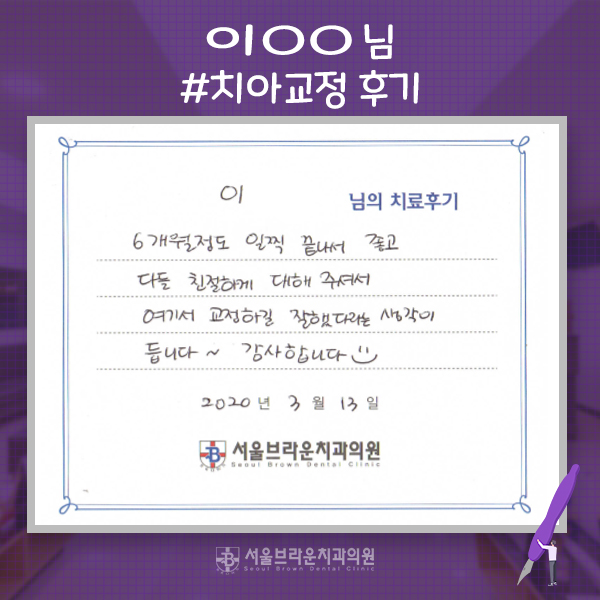 이○○ 님
#치아교정 후기
이 님의 치료후기
6개월정도 일찍 끝나서 좋고
다들 친절하게 대해 주셔서
여기서 교정하길 잘했다라는 생각이
듭니다~ 감사합니다☺
2020년 3월 13일
서울브라운치과의원
Seoul Brown Dental Clinic
서울브라운치과의원
Seoul Brown Dental Clinic